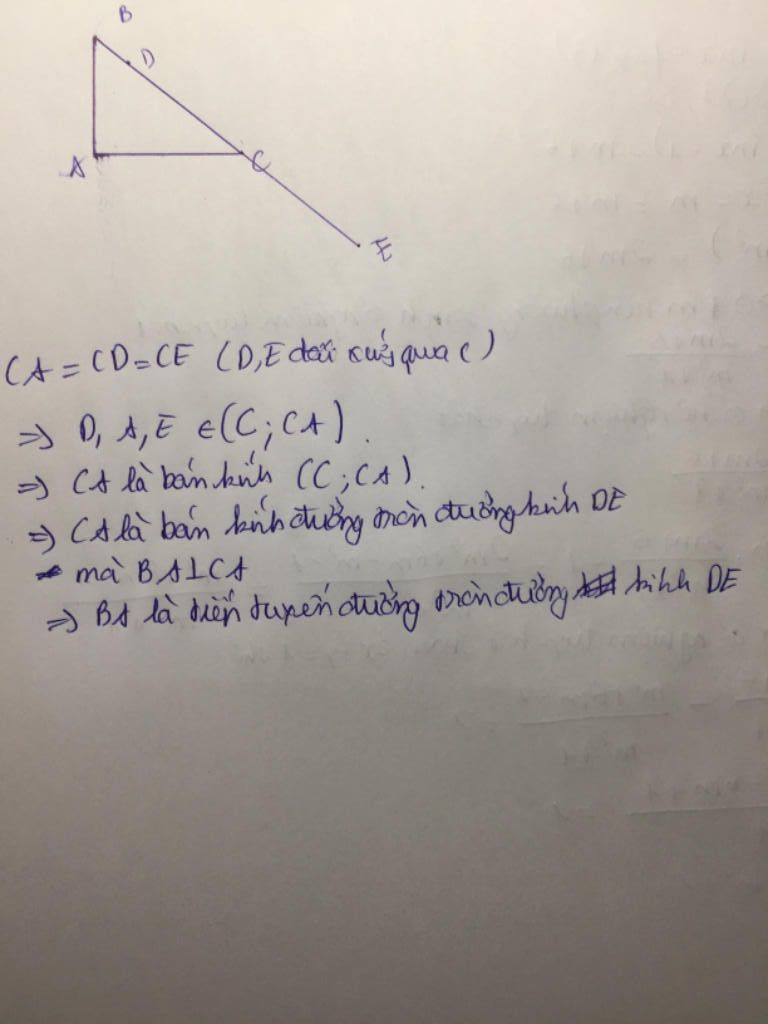 B
D
A
C
E
CA = CD = CE (D, E đối xứng qua C)
=> D, A, E ∈ (C; CA).
=> CA là bán kính (C; CA).
=> CA là bán kính đường tròn đường kính DE
mà BA ⊥ CA
=> BA là tiếp tuyến đường tròn đường kính DE